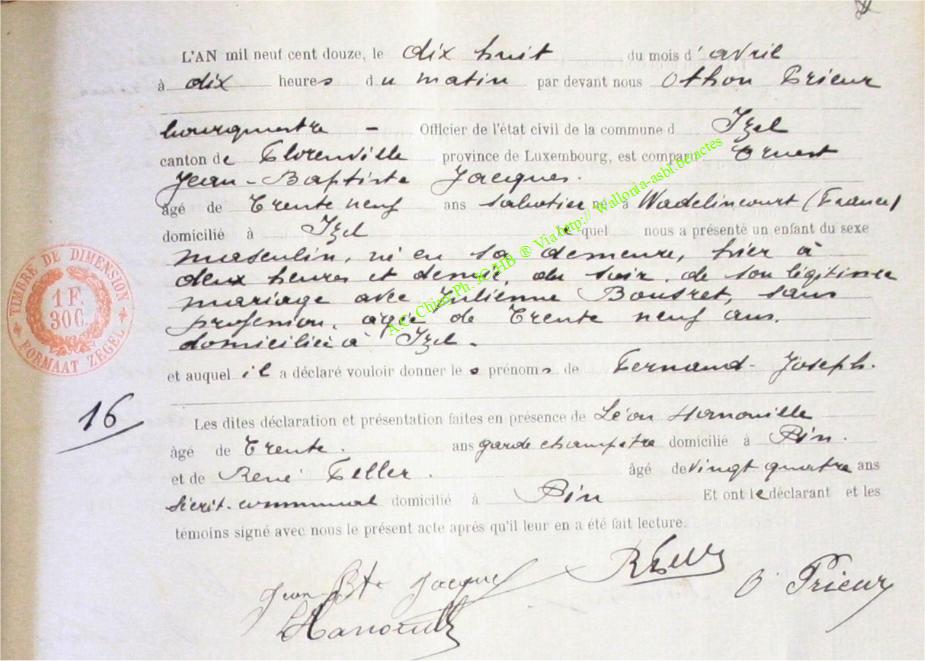 L'AN mil neuf cent douze, le dix huit du mois d'avril
à dix heures du matin par devant nous Othon Prieur
bourgmestre - Officier de l'état civil de la commune d Izel
canton de Florenville province de Luxembourg, est comparu Ernest
Jean-Baptiste Jacques.
âgé de Trente neuf ans sabotier né à Wadelincourt (France)
domicilié à Izel lequel nous a présenté un enfant du sexe
masculin, né en sa demeure, hier à
deux heures et demie du soir, de son légitime
mariage avec Julienne Bousret, sans
profession, agée de Trente neuf ans.
domiciliée à Izel.
et auquel il a déclaré vouloir donner les prénoms de Fernand-Joseph.
16
Les dites déclaration et présentation faites en présence de Léon Hanouille
âgé de Trente. ans garde champetre domicilié à Pin.
et de René Feller. âgé de vingt quatre ans
secrét. communal domicilié à Pin Et ont le déclarant et les
témoins signé avec nous le présent acte après qu'il leur en a été fait lecture.
Jean Bte Jacques
O Prieur
TIMBRE DE DIMENSION
1 F.
30 C.
FORMAAT ZEGEL
Via http:// Wallonia-asbl.be/actes